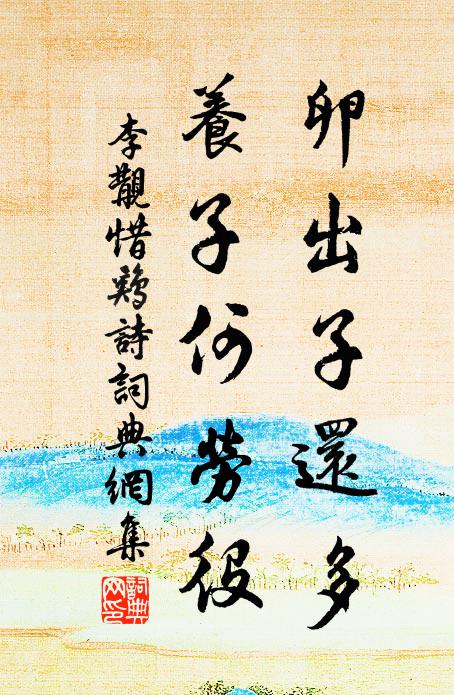 卵出子還多
養子何勞役
李覯惜鷄詩詞典網集